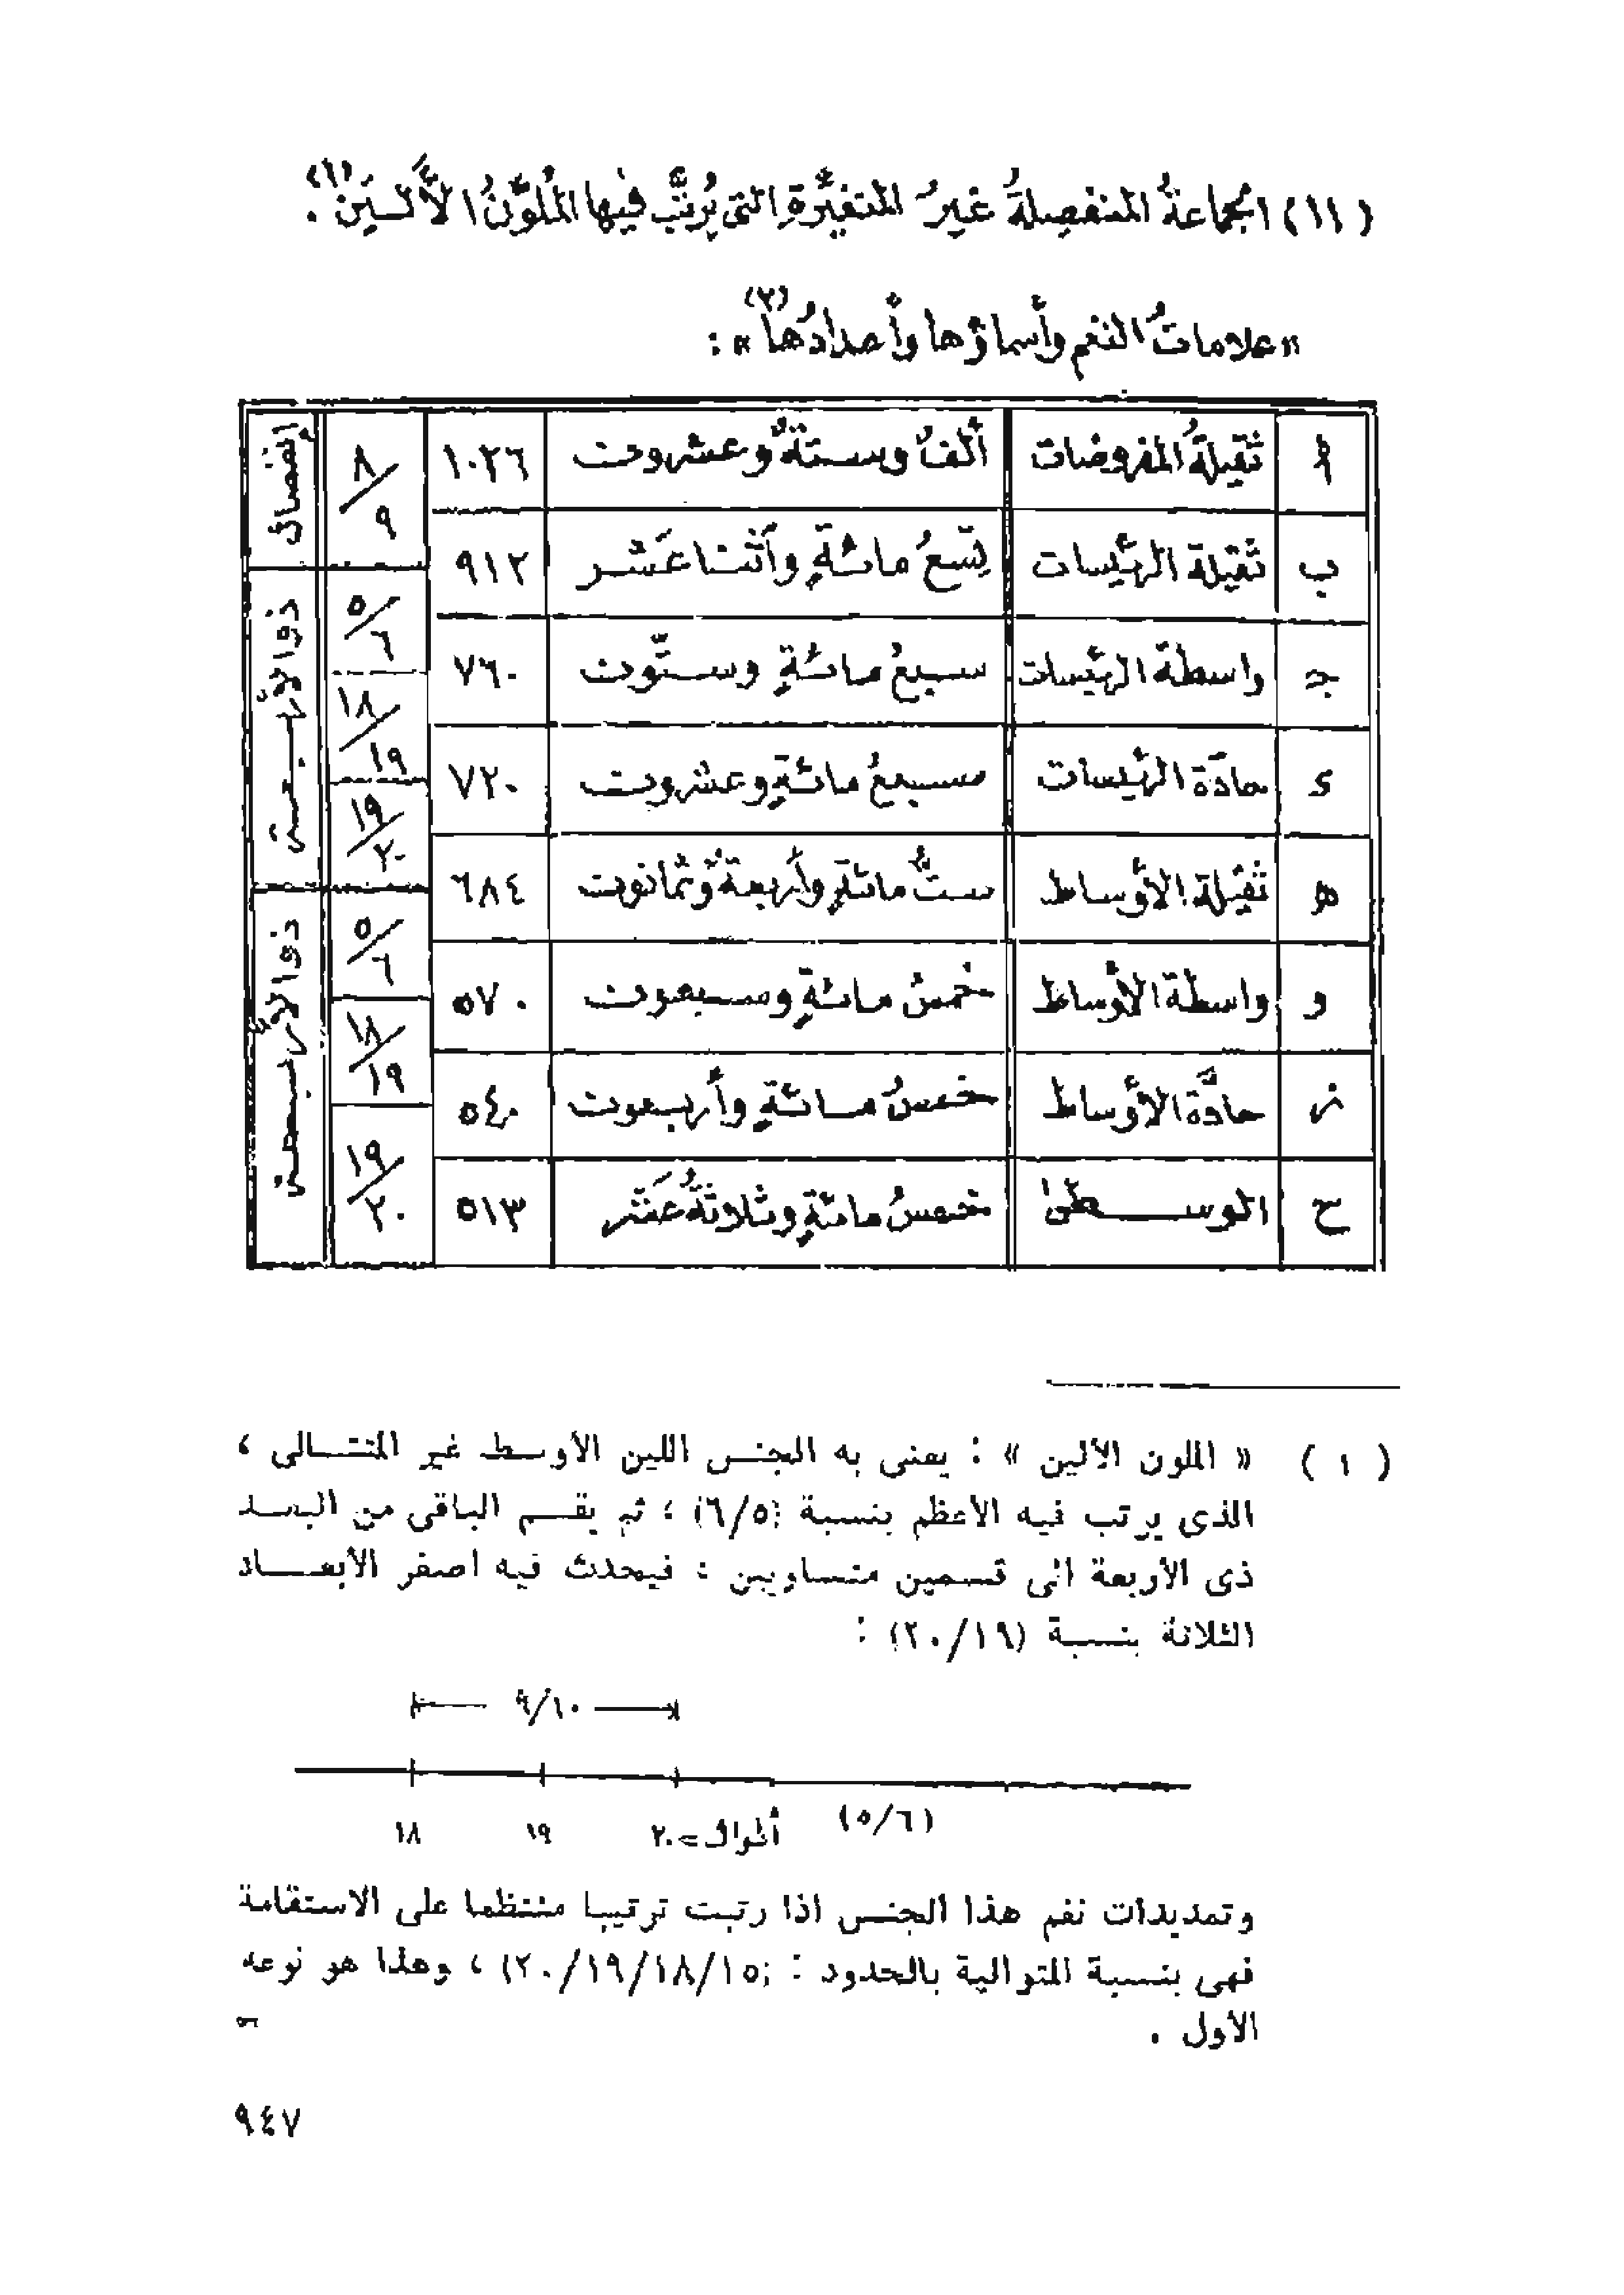 (١١) الجماعةُ المنفصِلةُ غيرُ المتغيِّرةِ التى يُرتَّب فيها المُلوَّنُ الأَليَن (١).
«علاماتُ النغم وأسماؤها وأعدادُها» (٢) :
أ ثقيلةُ المفروضات ألفٌ وستةٌ وعشرون ١٠٢٦ ٨/٩ انفصال
ب ثقيلة الرئيسات تِسعُ مائةٍ وآثنا عَشَر ٩١٢
ج واسطة الرئيسات سبعُ مائةٍ وستّون ٧٦٠ ٥/٦ ذو الأربعة
د حادّة الرئيسات سبعُ مائةٍ وعشرون ٧٢٠ ١٨/١٩
ه ثقيلة الأوساط ستُّ مائةٍ وأربعةٌ وثمانون ٦٨٤ ١٩/٢٠
و واسطة الأوساط خمسُ مائةٍ وسبعون ٥٧٠ ٥/٦ ذو الأربعة
ز حادَّة الأوساط خمسُ مائةٍ وأربعون ٥٤٠ ١٨/١٩
ح الوسطىٰ خمسُ مائةٍ وثلاثةُ عَشَر ٥١٣ ١٩/٢٠
(١) « الملون الألين » : يعنى به الجنس اللين الأوسط غير المتتالى ،
الذى يرتب فيه الأعظم بنسبة (٦/٥) ؛ ثم يقسم الباقى من البعد
ذى الأربعة الى قسمين متساويين : فيحدث فيه اصغر الأبعاد
الثلاثة بنسبة (٢٠/١٩) :
٩/١٠
(٥/٦)
أطوال = ٢٠ ١٩ ١٨
وتمديدات نغم هذا الجنس اذا رتبت ترتيبا منتظما على الاستقامة
فهى بنسبة المتوالية بالحدود : (٢٠/١٩/١٨/١٥) ، وهذا هو نوعه
الأول .
٩٤٧